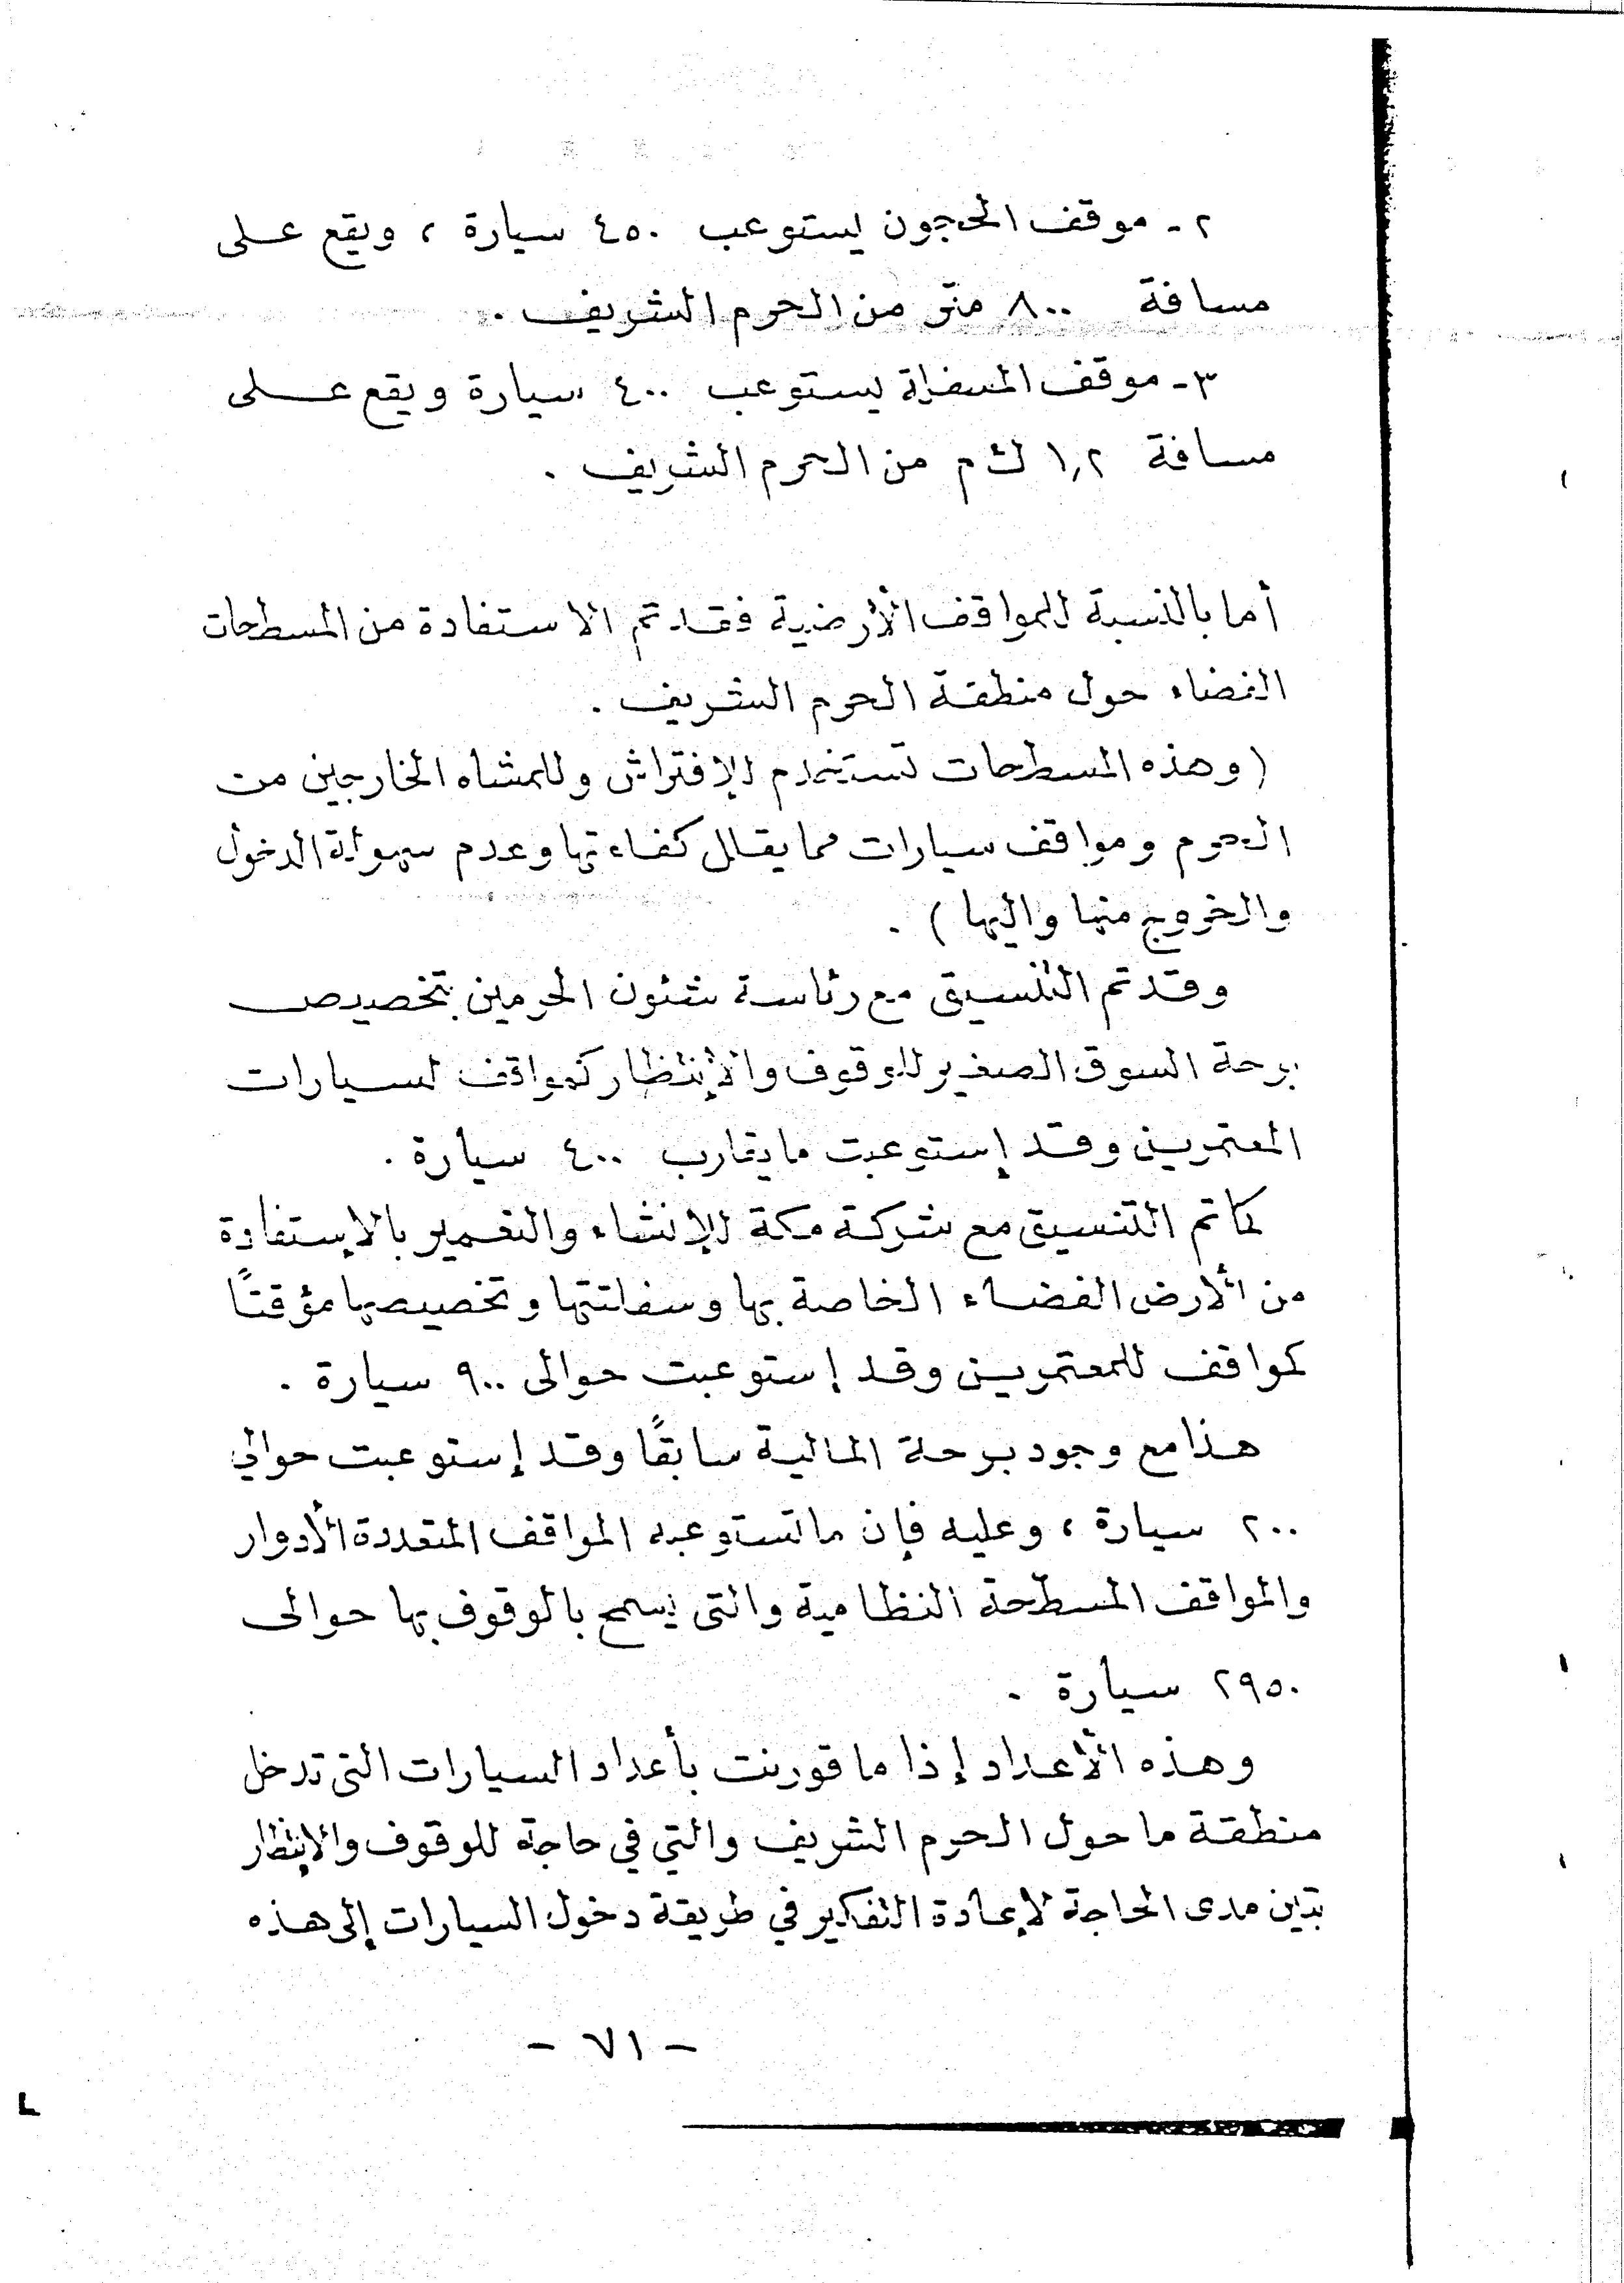 ٢ - موقف الحجون يستوعب ٤٥٠ سيارة ، ويقع على
مسافة ٨٠٠ متر من الحرم الشريف .
٣ - موقف المسفلة يستوعب ٤٠٠ سيارة ويقع على
مسافة ١,٢ ك م من الحرم الشريف .
أما بالنسبة للمواقف الأرضية فقد تم الاستفادة من المسطحات
الفضاء حول منطقة الحرم الشريف .
( وهذه المسطحات تستخدم للإفتراش وللمشاه الخارجين من
الحرم ومواقف سيارات مما يقلل كفاءتها وعدم سهولة الدخول
والخروج منها واليها ) .
وقد تم التنسيق مع رئاسة شئون الحرمين بتخصيص
برحة السوق الصغير للوقوف والإنتظار كمواقف لسيارات
المعتمرين وقد إستوعبت ما يقارب ٤٠٠ سيارة .
كما تم التنسيق مع شركة مكة للإنشاء والتعمير بالإستفادة
من الأرض الفضاء الخاصة بها وسفلتتها وتخصيصها مؤقتًا
كمواقف للمعتمرين وقد إستوعبت حوالى ٩٠٠ سيارة .
هذا مع وجود برحة المالية سابقًا وقد إستوعبت حوالي
٢٠٠ سيارة ، وعليه فإن ما تستوعبه المواقف المتعددة الأدوار
والمواقف المسطحة النظامية والتى يسمح بالوقوف بها حوالى
٢٩٥٠ سيارة .
وهذه الأعداد إذا ما قورنت بأعداد السيارات التى تدخل
منطقة ما حول الحرم الشريف والتي في حاجة للوقوف والإنتظار
تبين مدى الحاجة لإعادة التفكير في طريقة دخول السيارات إلى هذه
- ٧١ -